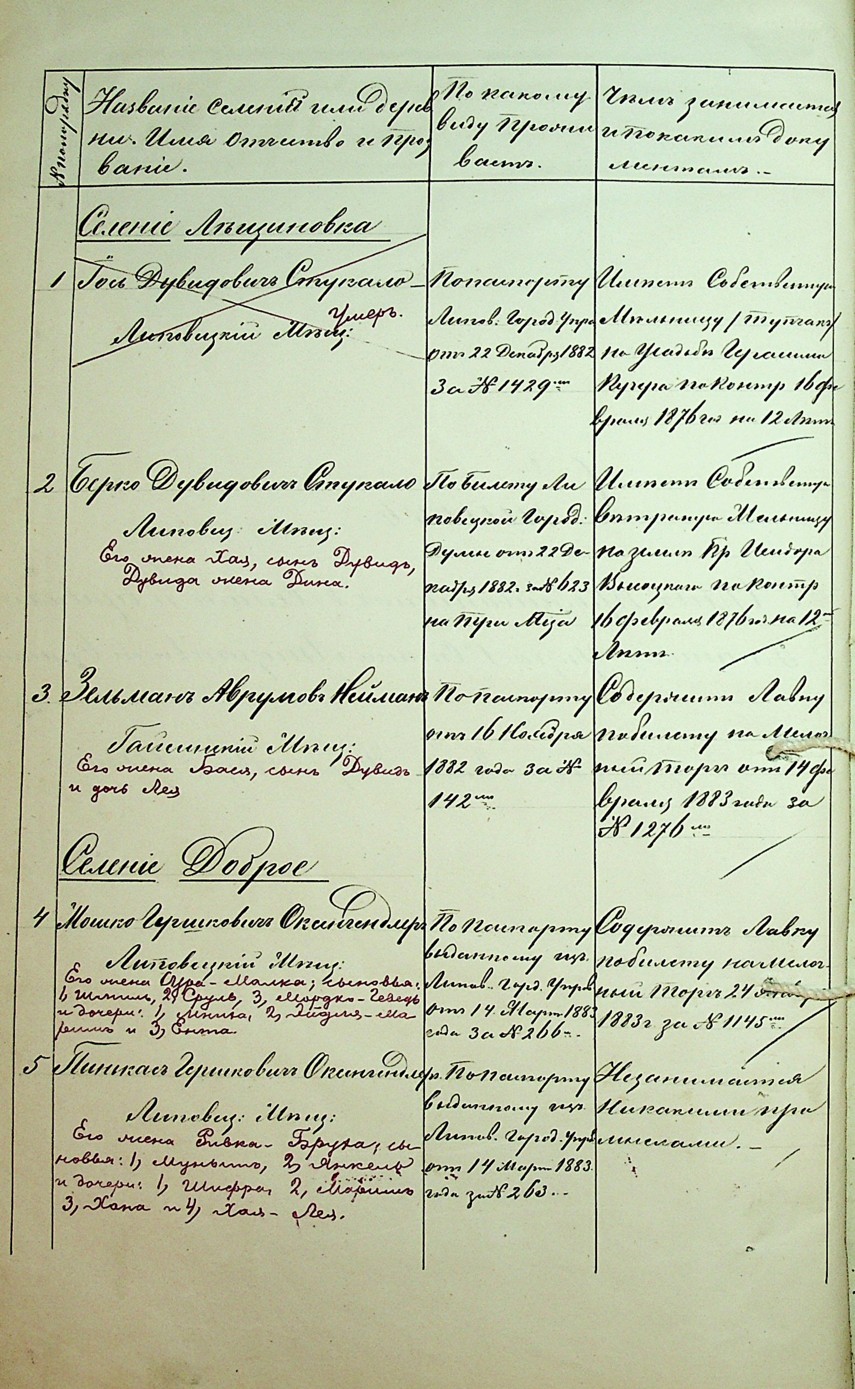 № по порядку
Названіе селеній или дерев
ни. Имя Отчество и Проз
ваніе.
По какому
виду Прожи
ваетъ.
Чѣмъ занимается
и по какимъ Доку
ментамъ. -
Селеніе Лѣщиновка
1
Іось Дувидовичъ Стукало
Умеръ.
Липовецкій Мѣщ:
По паспорту
Липов: Город. Упра
отъ 22 Декабря 1882
За № 1429
Имѣетъ Собственную
Мельницу /тупчакъ/
на Усадьбѣ Герасима
Кучера по Контр 16 фе
враля 1876 год на 12 Лѣтъ
2
Берко Дувидовичъ Стукало
Липовец: Мѣщ:
Его жена Хая, сынъ Дувидъ,
Дувида жена Дина.
По билету Ли
повецкой Город:
Думы отъ 22 Де-
кабря 1882 г. за № 623
Имѣетъ Собственную
вѣтряную Мельницу
на землѣ Кр
Высоцкаго по Контр
16 февраля 1876 год на 12
Лѣтъ
3.
Зельманъ Аврумовъ Нейманъ
Гайсинскій Мѣщ:
Его жена Бася, сынъ Дувидъ
и дочь Лея
По паспорту
отъ 16 Ноября
1882 года За №
142
Содержитъ Лавку
по билету на Мелоч
ный торгъ отъ 14 фе
враля 1883 года за
№ 1276
Селеніе Доброе
4
Мошко Гершковичъ Оксингендлеръ
Липовецкій Мѣщ:
Его жена Сура-Малка; сыновья:
1, Шлиома, 2, Сруль, 3, Мордко-
и дочери: 1, 2, Эйдля-Ма
и 3, Ента
По паспорту
выданному изъ
Липов. Город. Управ
отъ 14 Март 1883
года За № 266 -.
Содержитъ Лавку
по билету на Мелоч-
ный Торгъ 24
1883 г за № 1145
5
Пинькасъ Гершковичъ Оксингендлеръ.
Липовец: Мѣщ:
Его жена Ривка-Бруха; сы-
новья: 1, 2, Янкель
и дочери: 1, Шифра, 2,
3, Хана и 4, Хая-Лея.
По паспорту
выданному изъ
Липов. Город. Упр
отъ 14 Март 1883
года за № 263. -
Незанимается
Никакими про
мыслами. -